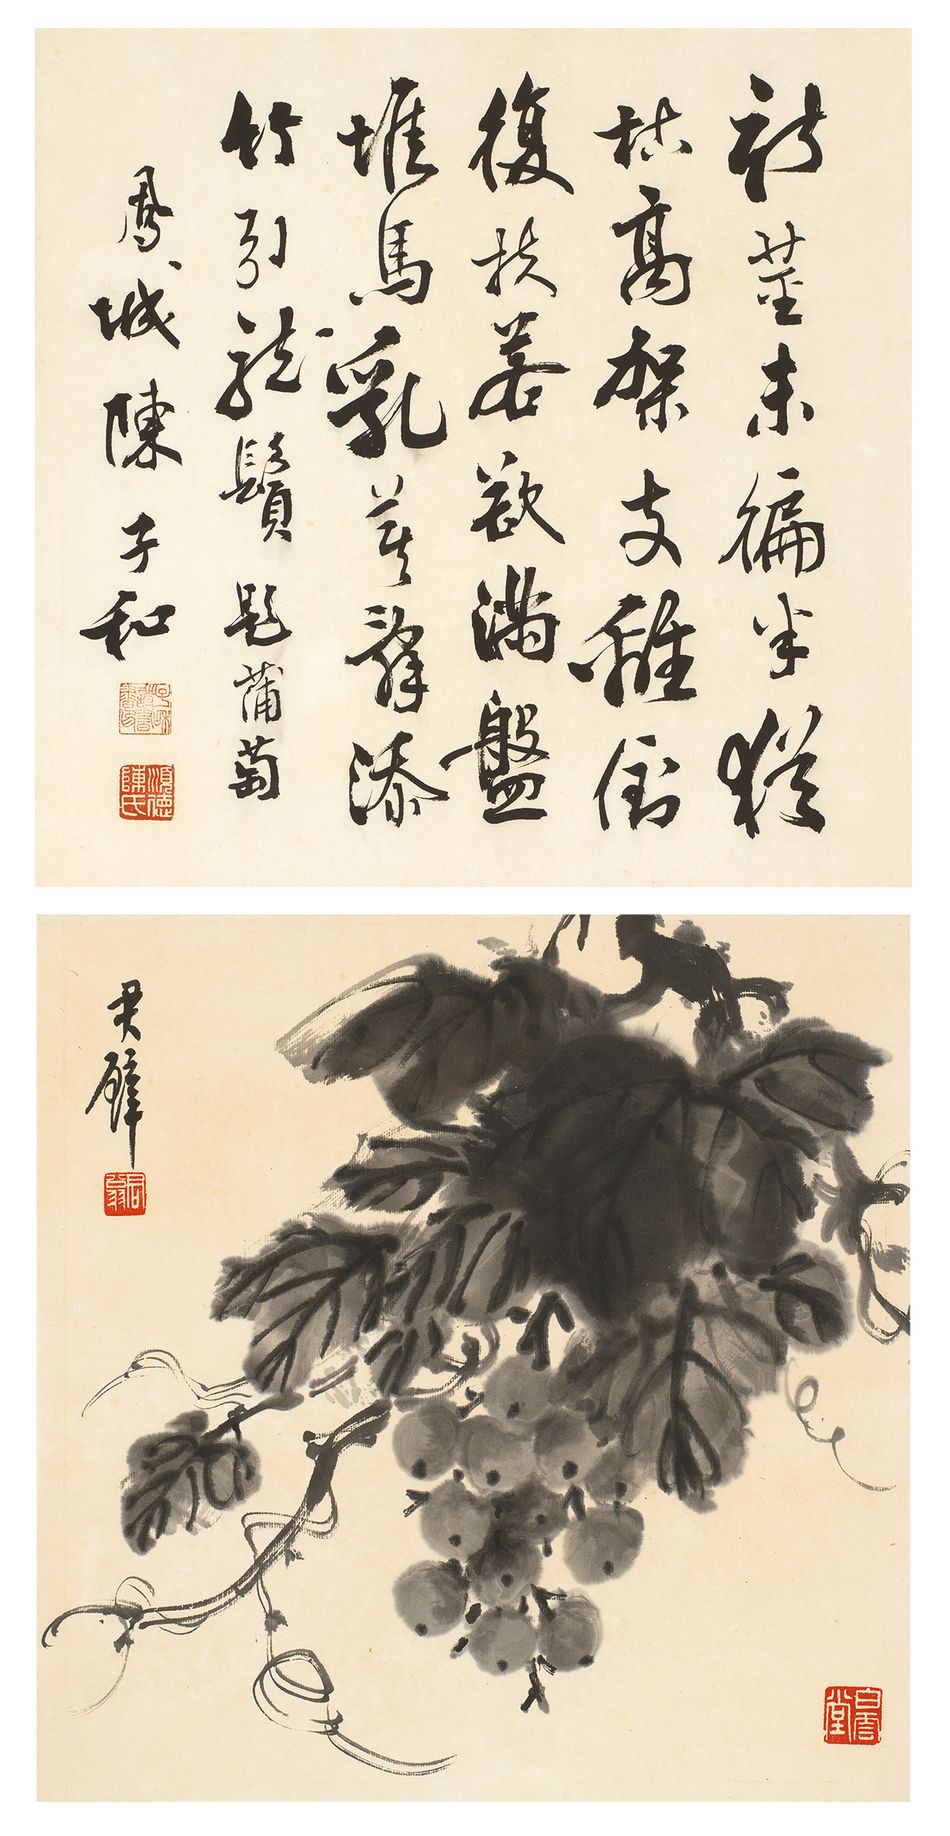 新莖未徧半猶
枯高架支離倒
復扶若欲滿盤
堆馬乳莫辭添
竹引龍鬚題蒲萄
鳳城陳子和
順德陳氏
君璧
君翁
白雲堂